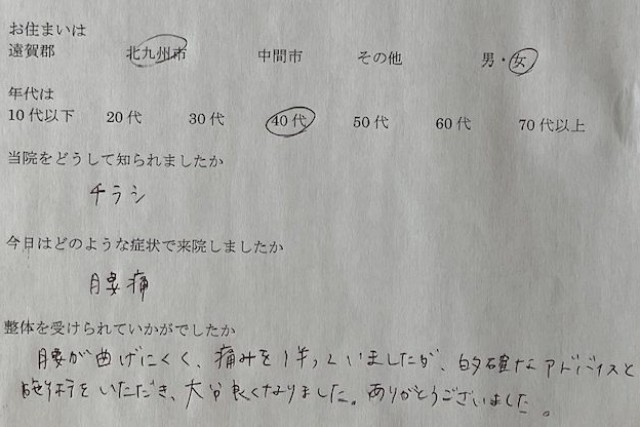 お住まいは
遠賀郡 北九州市 中間市 その他 男・女
年代は
10代以下 20代 30代 40代 50代 60代 70代以上
当院をどうして知られましたか
チラシ
今日はどのような症状で来院しましたか
腰痛
整体を受けられていかがでしたか
腰が曲げにくく、痛みを伴っていましたが、的確なアドバイスと
施術をいただき、大分良くなりました。ありがとうございました。